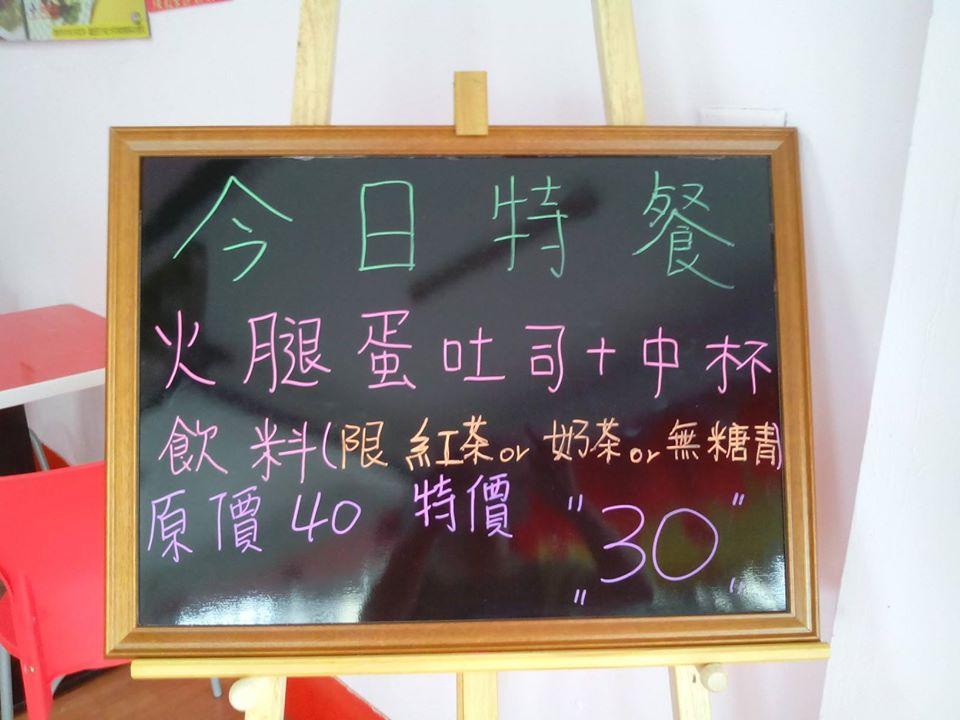 今日特餐
火腿蛋吐司+中杯
飲料(限紅茶or奶茶or無糖青
原價40 特價 "30"